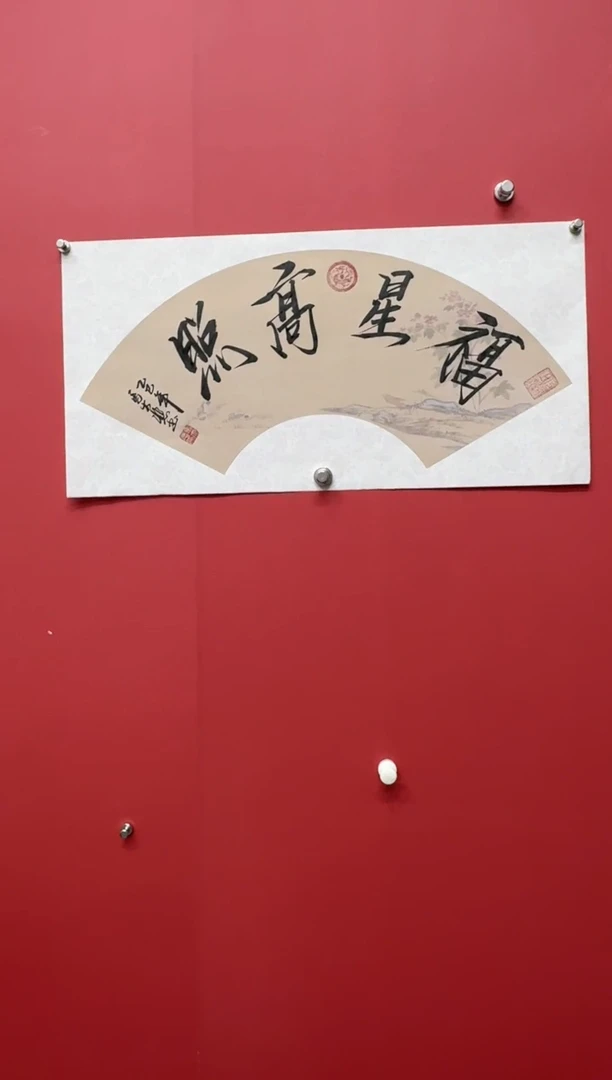 福星高照
乙巳年